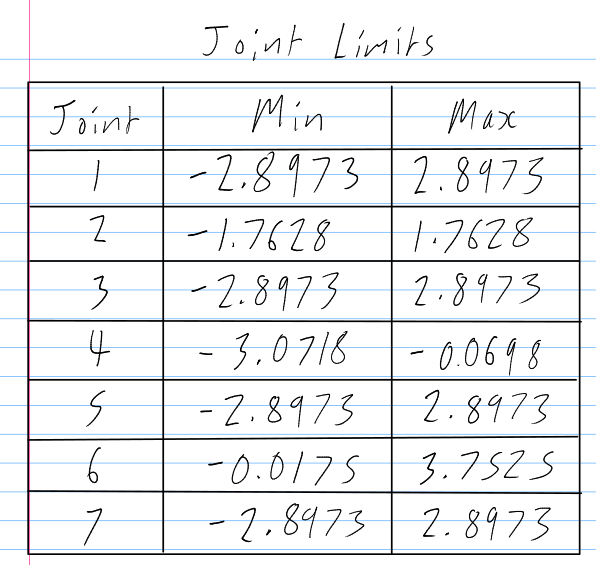 Joint Limits
Joint Min Max
1 -2.8973 2.8973
2 -1.7628 1.7628
3 -2.8973 2.8973
4 -3.0718 -0.0698
5 -2.8973 2.8973
6 -0.0175 3.7525
7 -2.8973 2.8973